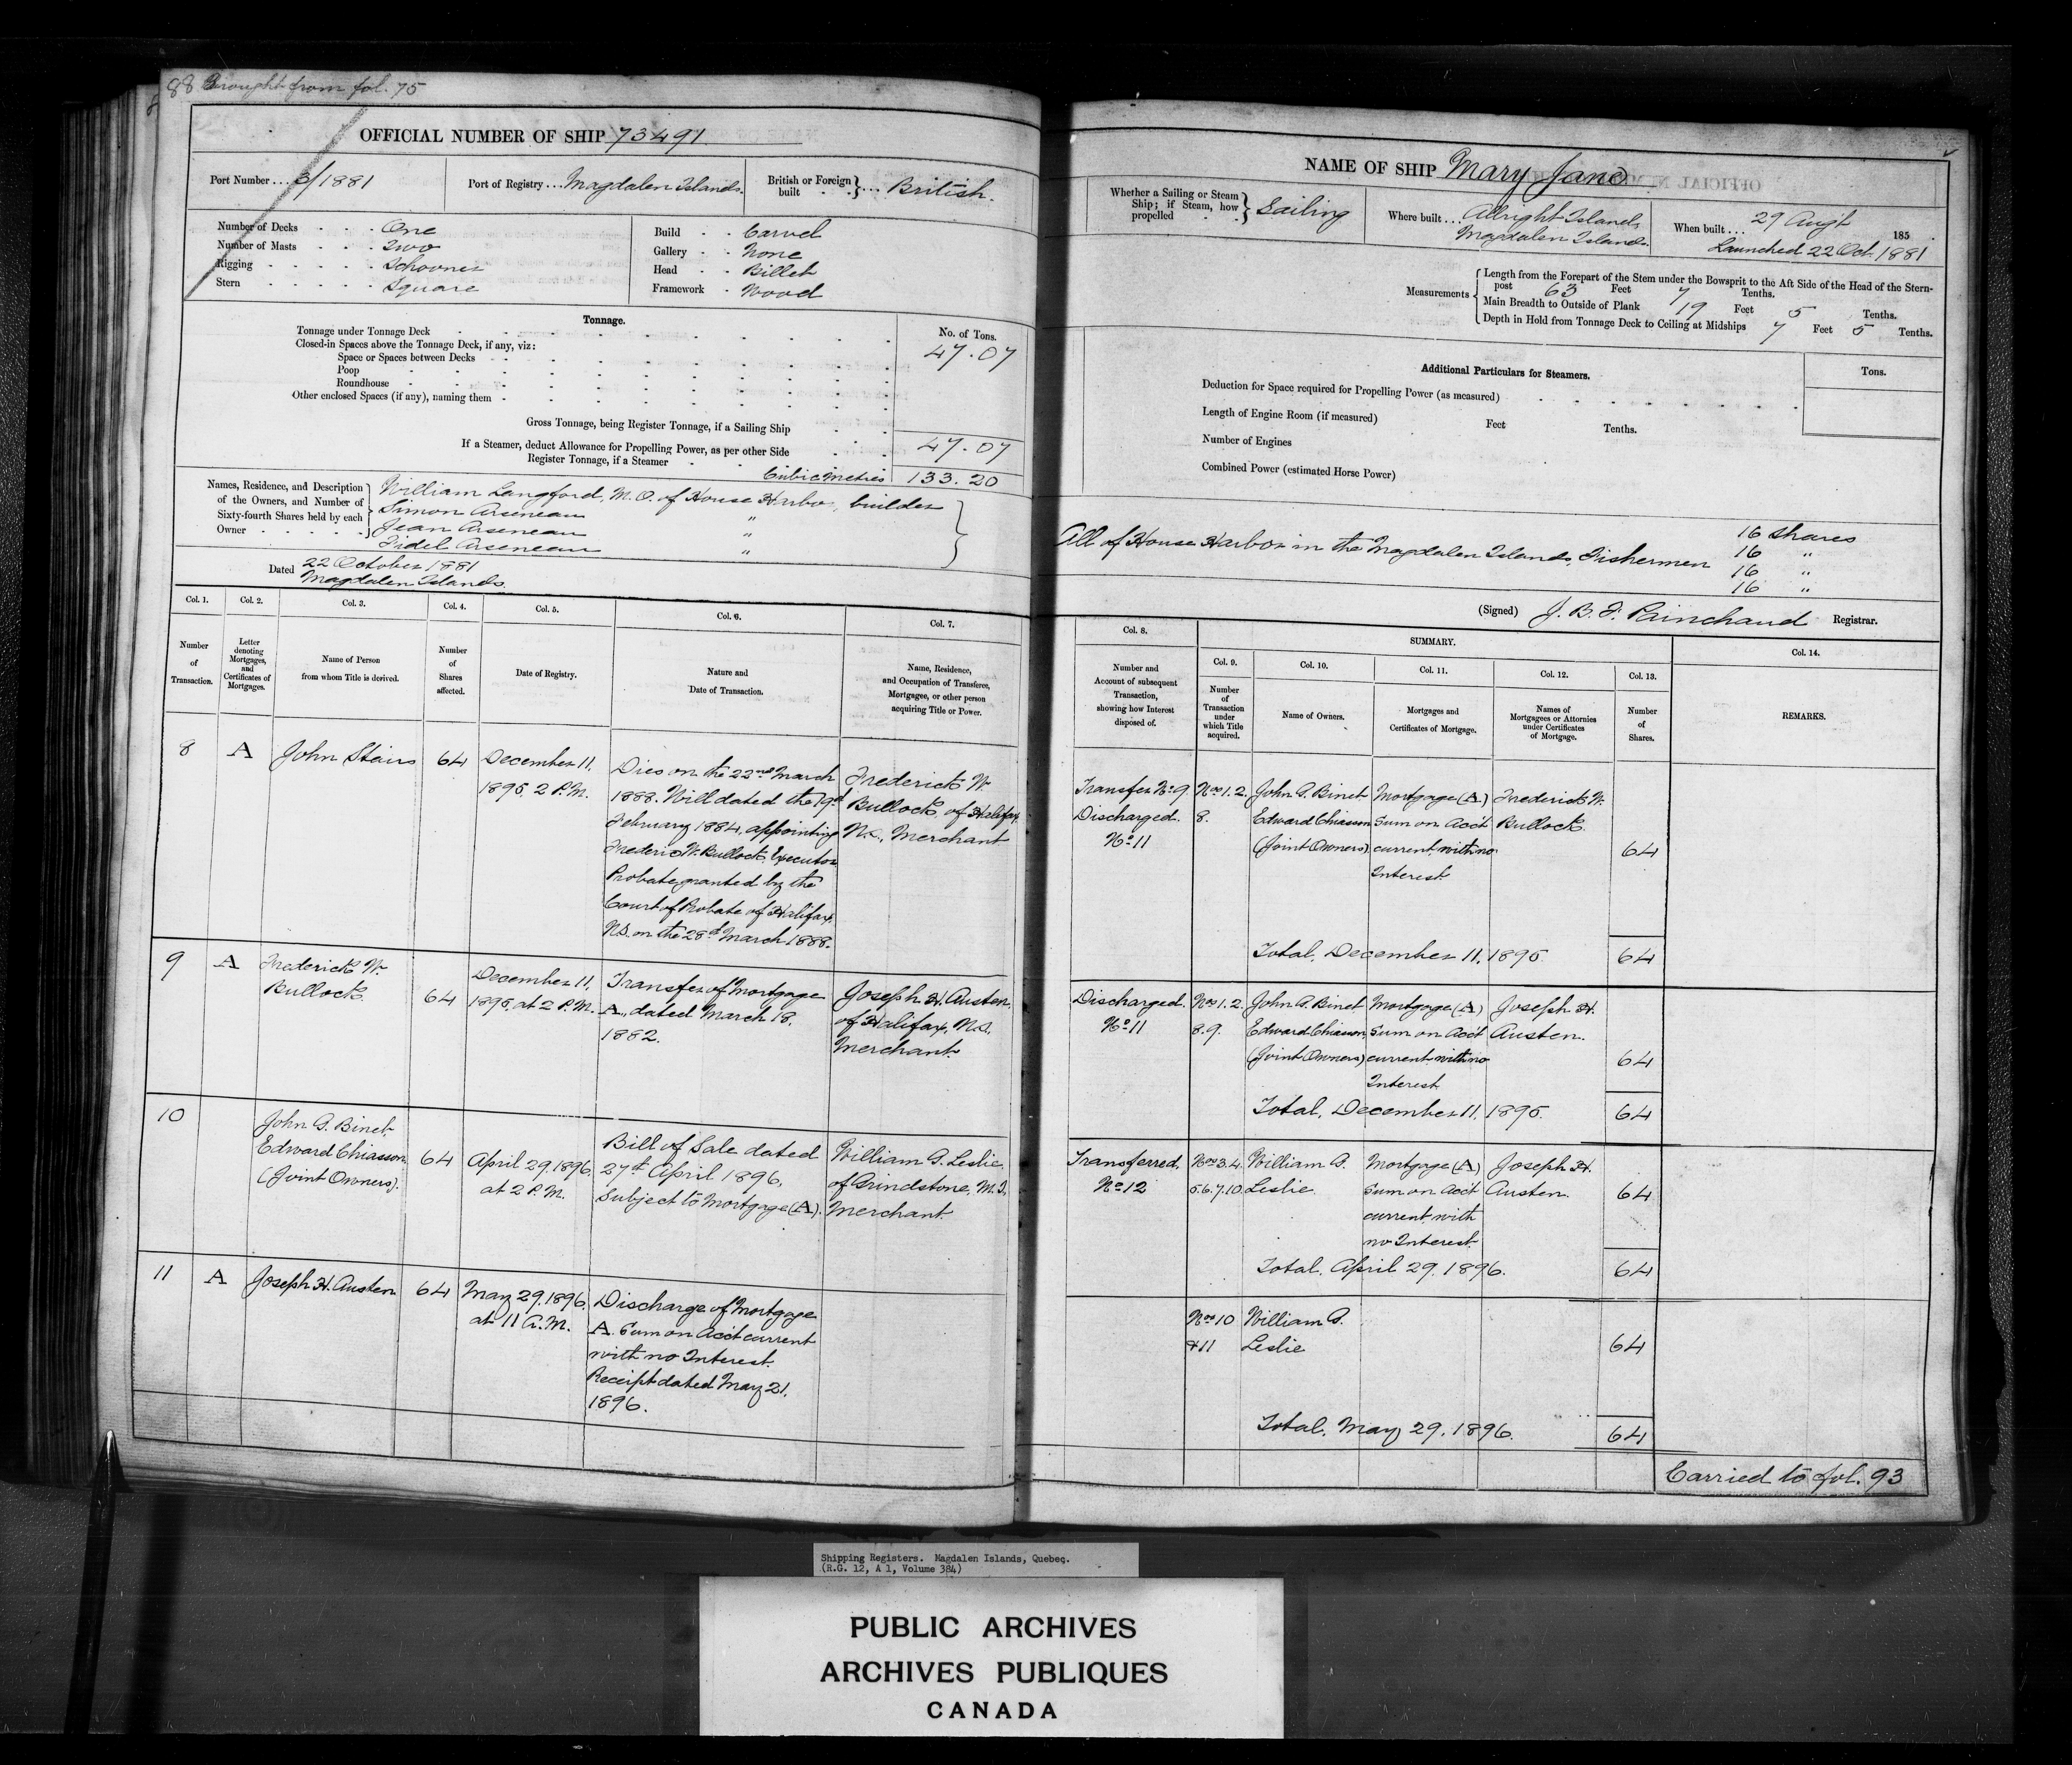 88 Brought from fol. 75
OFFICIAL NUMBER OF SHIP 73491
Port Number ... 3/1881
Port of Registry ... Magdalen Islands.
British or Foreign built } ... British.
Number of Decks One
Number of Masts Two
Rigging Schooner
Stern Square
Build Carvel
Gallery None
Head Billet
Framework Wood
Tonnage.
No. of Tons.
Tonnage under Tonnage Deck 47.07
Closed-in Spaces above the Tonnage Deck, if any, viz:
Space or Spaces between Decks
Poop
Roundhouse
Other enclosed Spaces (if any), naming them
Gross Tonnage, being Register Tonnage, if a Sailing Ship
If a Steamer, deduct Allowance for Propelling Power, as per other Side 47.07
Register Tonnage, if a Steamer
Cubic Metres 133.20
Names, Residence, and Description of the Owners, and Number of Sixty-fourth Shares held by each Owner
William Langford, M.O. of House Harbor, builder
Simon Arseneau "
Jean Arseneau "
Fidel Arseneau "
Dated 22 October 1881
Magdalen Islands.
Col. 1. Col. 2. Col. 3. Col. 4. Col. 5. Col. 6. Col. 7.
Number of Transaction.
Letter denoting Mortgages, and Certificates of Mortgages.
Name of Person from whom Title is derived.
Number of Shares affected.
Date of Registry.
Nature and Date of Transaction.
Name, Residence, and Occupation of Transferee, Mortgagee, or other person acquiring Title or Power.
8 A John Stairs 64
December 11, 1895, 2 P.M.
Dies on the 22nd March
1888. Will dated the 19th
February 1884, appointing
Frederic W. Bullock, Executor
Probate granted by the
Court of Probate of Halifax,
N.S. on the 28th March 1888.
Frederick W.
Bullock, of Halifax,
N.S., Merchant
9 A Frederick W.
Bullock. 64
December 11,
1895, at 2 P.M.
Transfer of Mortgage
A, dated March 18,
1882.
Joseph H. Austen,
of Halifax, N.S.
Merchant
10 John G. Binet
Edward Chiasson
(Joint Owners). 64
April 29, 1896,
at 2 P.M.
Bill of Sale dated
27th April 1896,
Subject to Mortgage (A).
William G. Leslie,
of Grindstone, M.I.,
Merchant
11 A Joseph H. Austen 64
May 29, 1896,
at 11 A.M.
Discharge of Mortgage
A Sum on Acc't current
with no Interest.
Receipt dated May 21,
1896.
NAME OF SHIP Mary Jane
Whether a Sailing or Steam Ship; if Steam, how propelled } Sailing
Where built ... Alright Island,
Magdalen Islands.
When built ... 29 Augt 185
Launched 22 Oct. 1881
Measurements
Length from the Forepart of the Stem under the Bowsprit to the Aft Side of the Head of the Stern-
post 63 Feet 7 Tenths.
Main Breadth to Outside of Plank 19 Feet 5 Tenths.
Depth in Hold from Tonnage Deck to Ceiling at Midships 7 Feet 5 Tenths.
Additional Particulars for Steamers.
Tons.
Deduction for Space required for Propelling Power (as measured)
Length of Engine Room (if measured) Feet Tenths.
Number of Engines
Combined Power (estimated Horse Power)
All of House Harbor in the Magdalen Islands, Fishermen
16 shares
16 "
16 "
16 "
(Signed) J. B. F. Painchaud Registrar.
Col. 8.
SUMMARY.
Col. 9. Col. 10. Col. 11. Col. 12. Col. 13. Col. 14.
Number and Account of subsequent Transaction, showing how Interest disposed of.
Number of Transaction under which Title acquired.
Name of Owners.
Mortgages and Certificates of Mortgage.
Names of Mortgagees or Attornies under Certificates of Mortgage.
Number of Shares.
REMARKS.
Transfer No 9.
Discharged.
No 11
Nos 1. 2.
8.
John G. Binet
Edward Chiasson
(Joint Owners)
Mortgage (A)
Sum on Acc't
current, with no
Interest
Frederick W.
Bullock.
64
Total, December 11, 1895. 64
Discharged.
No 11
Nos 1. 2.
8. 9.
John G. Binet
Edward Chiasson,
(Joint Owners)
Mortgage (A)
Sum on Acc't
current with no
Interest
Joseph H.
Austen.
64
Total, December 11, 1895. 64
Transferred,
No 12
Nos 3. 4.
5. 6. 7. 10
William G.
Leslie.
Mortgage (A)
Sum on Acc't
current with
no Interest.
Joseph H.
Austen.
64
Total, April 29, 1896. 64
Nos 10
& 11
William G.
Leslie
64
Total, May 29, 1896. 64
Carried to fol. 93
Shipping Registers. Magdalen Islands, Quebec.
(R.G. 12, A 1, Volume 384)
PUBLIC ARCHIVES
ARCHIVES PUBLIQUES
CANADA